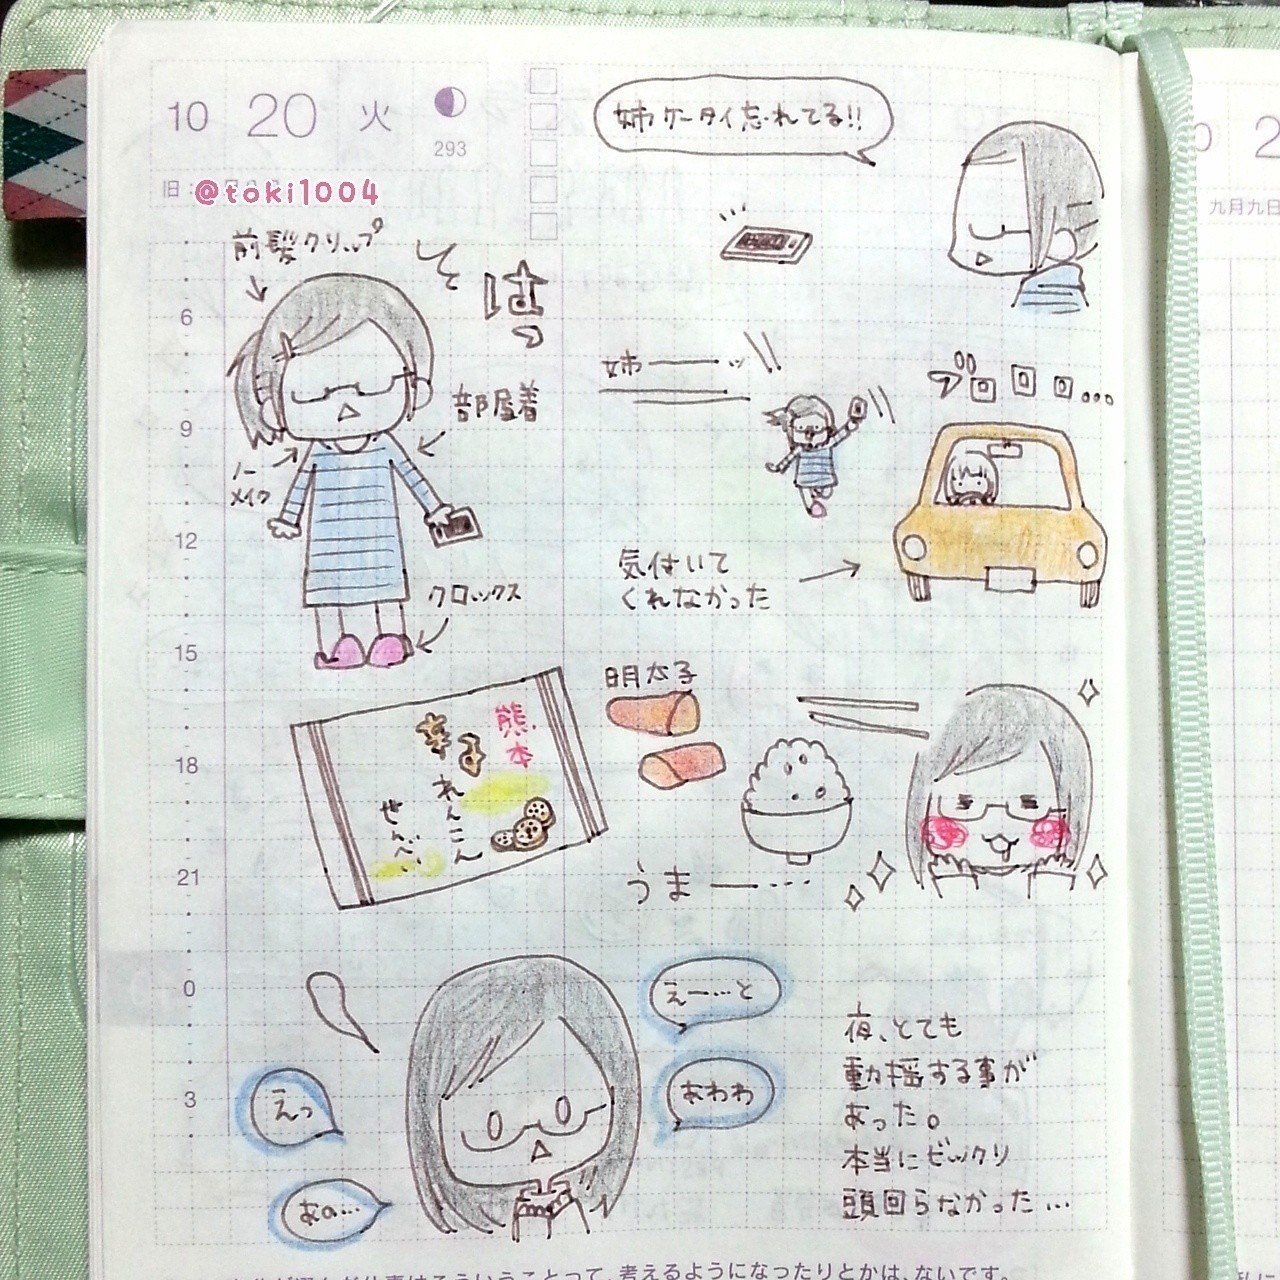 10 20 火
293
旧:
@toki1004
姉ケータイ忘れてる!!
前髪クリップ
はっ
部屋着
ノー
メイク
クロックス
姉――ッ
ブロロロ...
気付いて
くれなかった
熊本
辛子
れんこん
せんべい
明太子
うまー…
えっ
あの…
えー…と
あわわ
夜、とても
動揺する事が
あった。
本当にビックリ
頭回らなかった…
6
9
12
15
18
21
0
3
って、考えるようになったりとかは、ないです。
2
九月九日